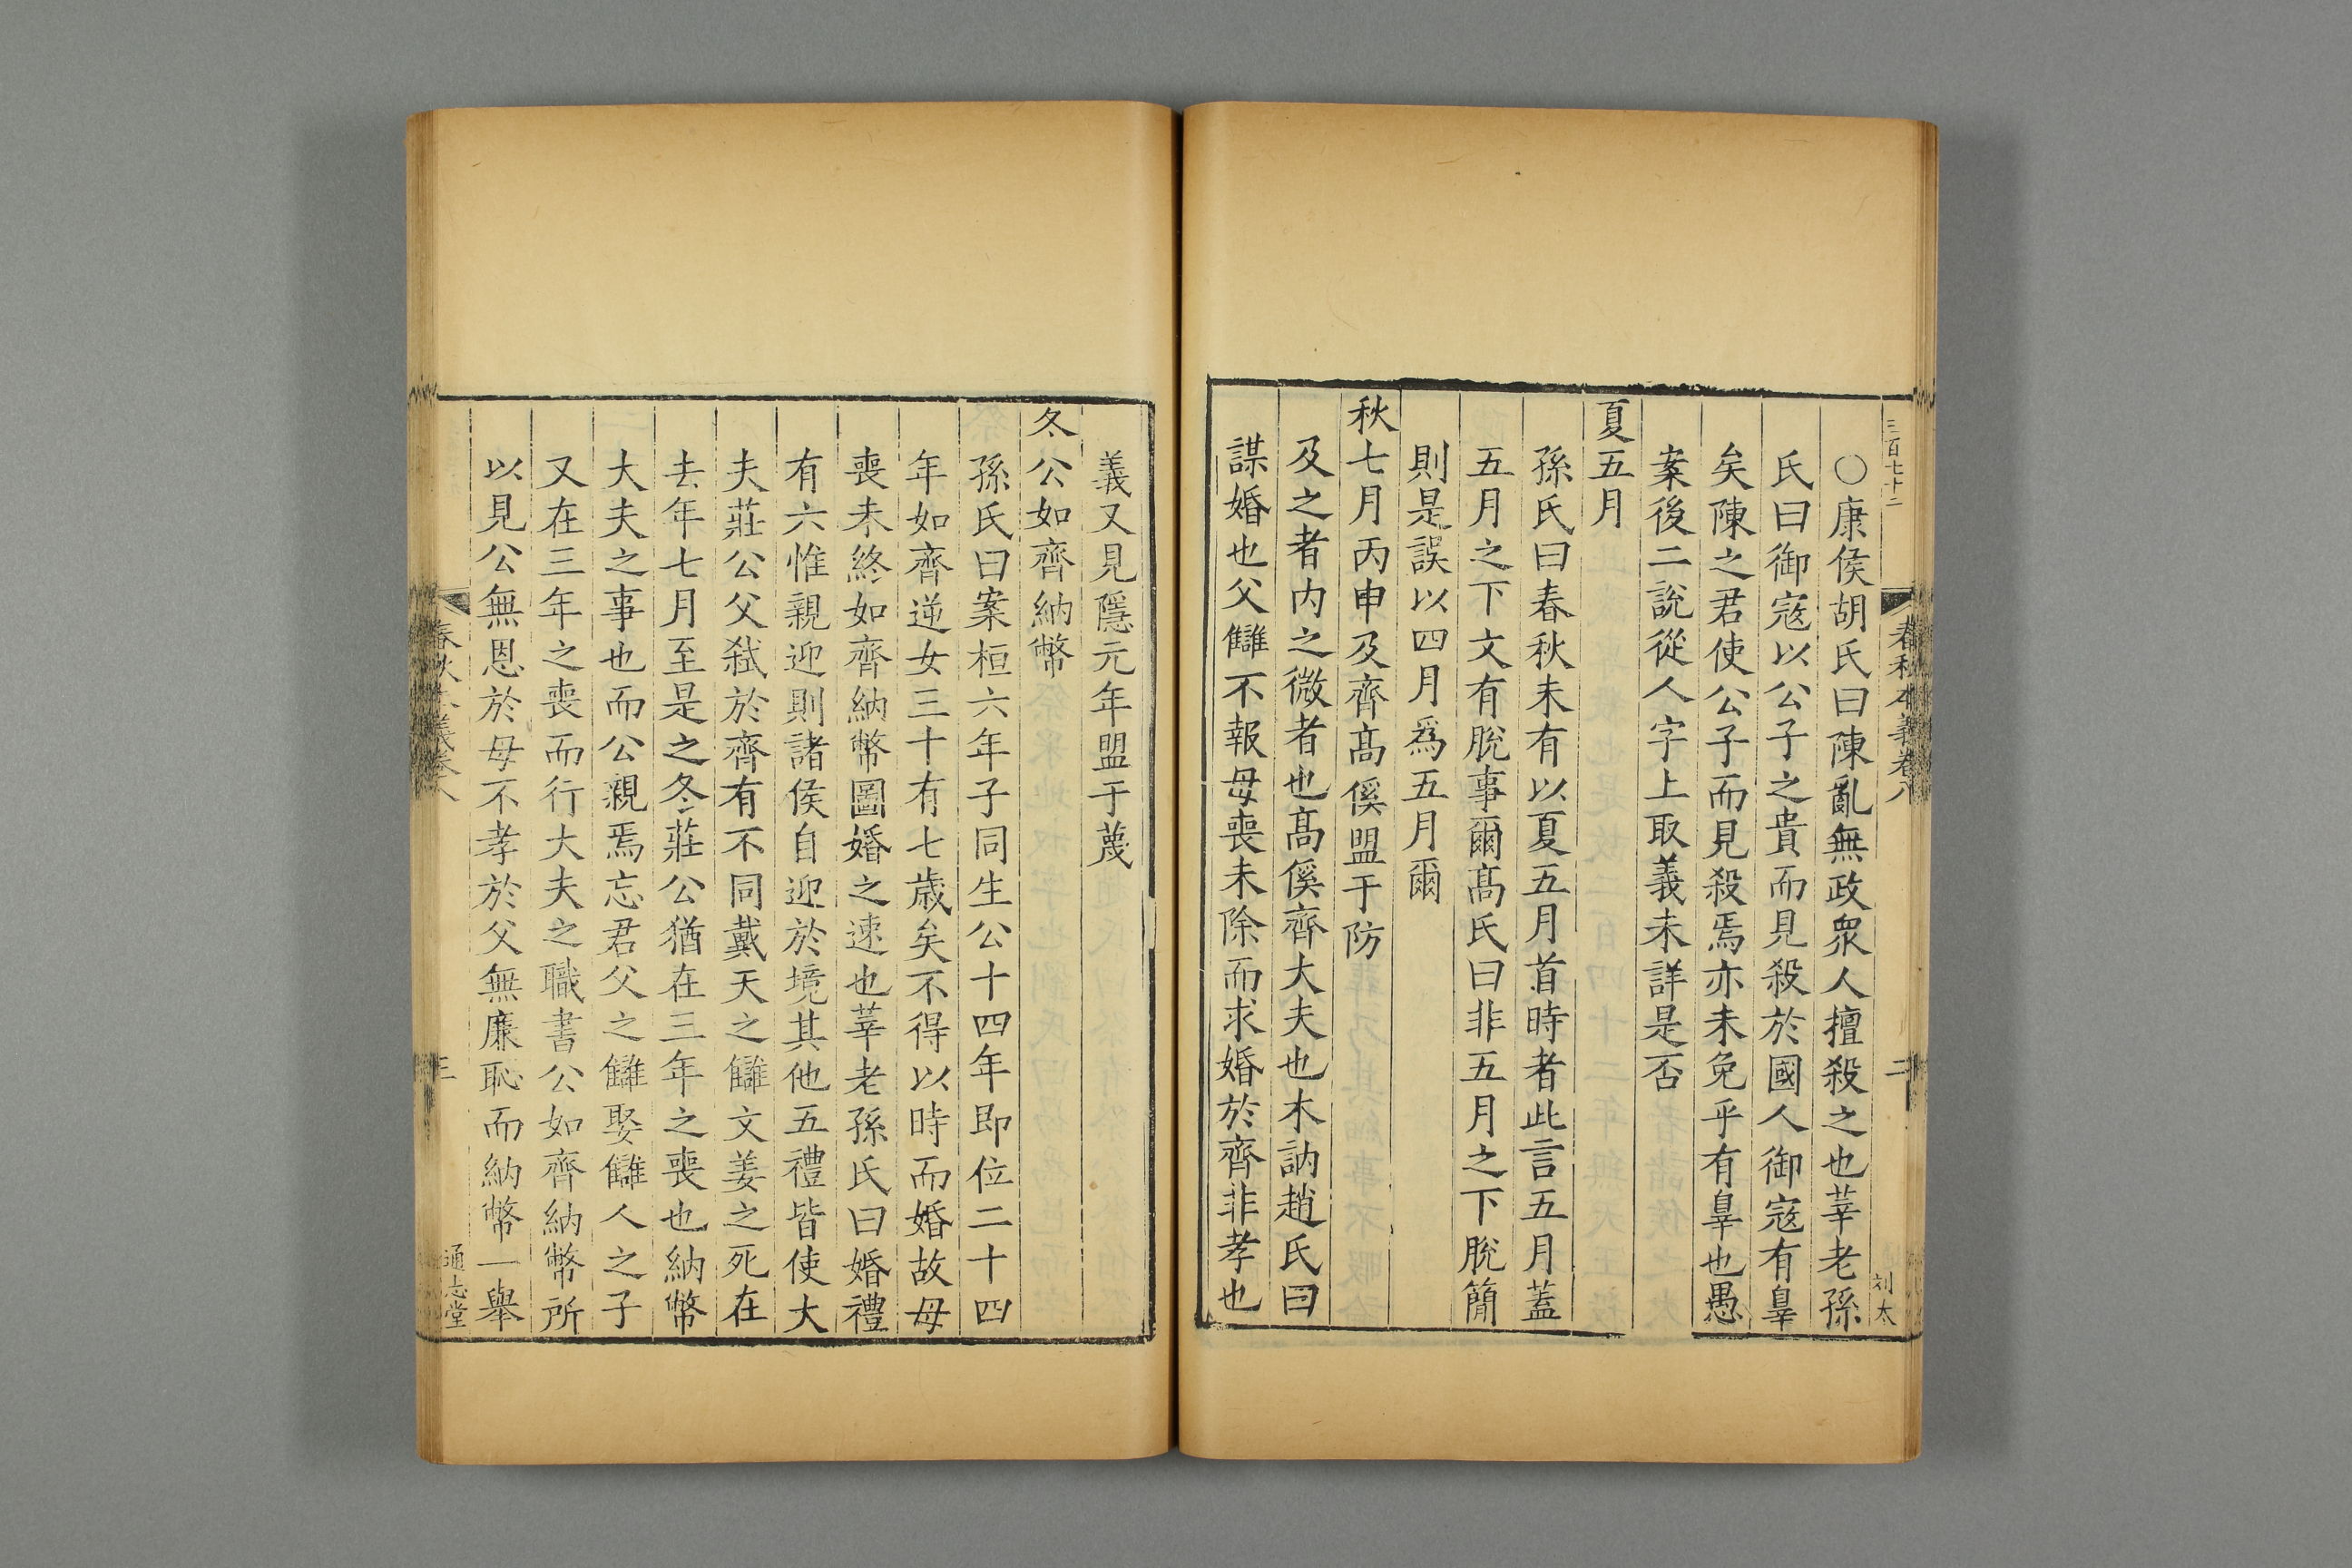 三百七十二
春秋本義卷八
二
刘太
○康侯胡氏曰陳亂無政衆人擅殺之也莘老孫
氏曰御寇以公子之貴而見殺於國人御寇有辠
矣陳之君使公子而見殺焉亦未免乎有辠也愚
案後二説從人字上取義未詳是否
夏五月
孫氏曰春秋未有以夏五月首時者此言五月蓋
五月之下文有脫事爾髙氏曰非五月之下脫簡
則是誤以四月爲五月爾
秋七月丙申及齊髙傒盟于防
及之者内之微者也髙傒齊大夫也木訥趙氏曰
謀婚也父讎不報母喪未除而求婚於齊非孝也
義又見隱元年盟于蔑
冬公如齊納幣
孫氏曰案桓六年子同生公十四年即位二十四
年如齊逆女三十有七歳矣不得以時而婚故母
喪未終如齊納幣圖婚之速也莘老孫氏曰婚禮
有六惟親迎則諸侯自迎於境其他五禮皆使大
夫莊公父弑於齊有不同戴天之讎文姜之死在
去年七月至是之冬莊公猶在三年之喪也納幣
大夫之事也而公親焉忘君父之讎娶讎人之子
又在三年之喪而行大夫之職書公如齊納幣所
以見公無恩於母不孝於父無廉恥而納幣一舉
春秋本義卷八
三
通志堂